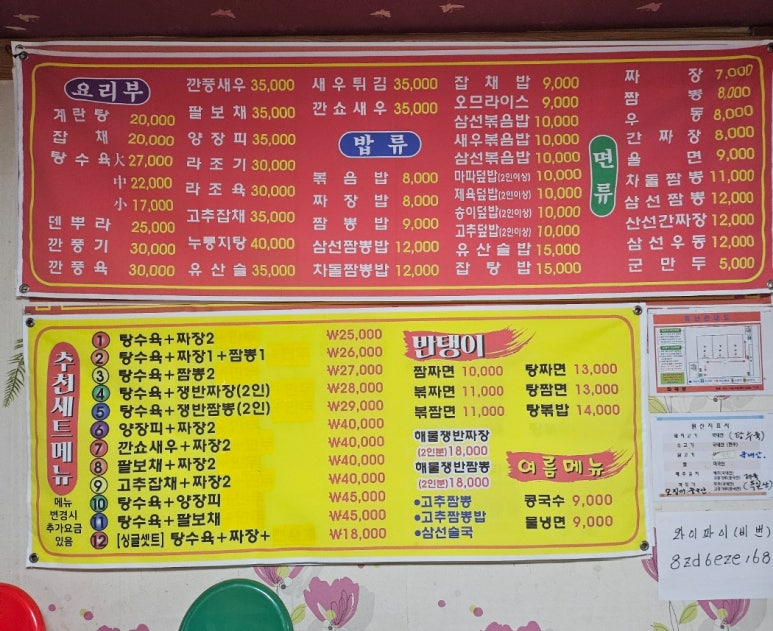 요리부
계란탕 20,000
잡채 20,000
탕수육 大 27,000
中 22,000
小 17,000
덴뿌라 25,000
깐풍기 30,000
깐풍육 30,000
깐풍새우 35,000
팔보채 35,000
양장피 35,000
라조기 30,000
라조육 30,000
고추잡채 35,000
누룽지탕 40,000
유산슬 35,000
새우튀김 35,000
깐쇼새우 35,000
밥류
볶음밥 8,000
짜장밥 8,000
짬뽕밥 9,000
삼선짬뽕밥 12,000
차돌짬뽕밥 12,000
잡채밥 9,000
오므라이스 9,000
삼선볶음밥 10,000
새우볶음밥 10,000
삼선볶음밥 10,000
마파덮밥(2인이상) 10,000
제육덮밥(2인이상) 10,000
송이덮밥(2인이상) 10,000
고추덮밥(2인이상) 10,000
유산슬밥 15,000
잡탕밥 15,000
면류
짜장 7,000
짬뽕 8,000
우동 8,000
간짜장 8,000
울면 9,000
차돌짬뽕 11,000
삼선짬뽕 12,000
산선간짜장 12,000
삼선우동 12,000
군만두 5,000
추천세트메뉴
메뉴
변경시
추가요금
있음
1 탕수육+짜장2 ₩25,000
2 탕수육+짜장1+짬뽕1 ₩26,000
3 탕수육+짬뽕2 ₩27,000
4 탕수육+쟁반짜장(2인) ₩28,000
5 탕수육+쟁반짬뽕(2인) ₩29,000
6 양장피+짜장2 ₩40,000
7 깐쇼새우+짜장2 ₩40,000
8 팔보채+짜장2 ₩40,000
9 고추잡채+짜장2 ₩40,000
10 탕수육+양장피 ₩45,000
11 탕수육+팔보채 ₩45,000
12 [싱글셋트] 탕수육+짜장+ ₩18,000
반탱이
짬짜면 10,000
볶짜면 11,000
볶짬면 11,000
탕짜면 13,000
탕짬면 13,000
탕볶밥 14,000
해물쟁반짜장
(2인분)18,000
해물쟁반짬뽕
(2인분)18,000
•고추짬뽕
•고추짬뽕밥
•삼선술국
여름메뉴
콩국수 9,000
물냉면 9,000
원산지표시
와이파이(비번)
8zd6eze168